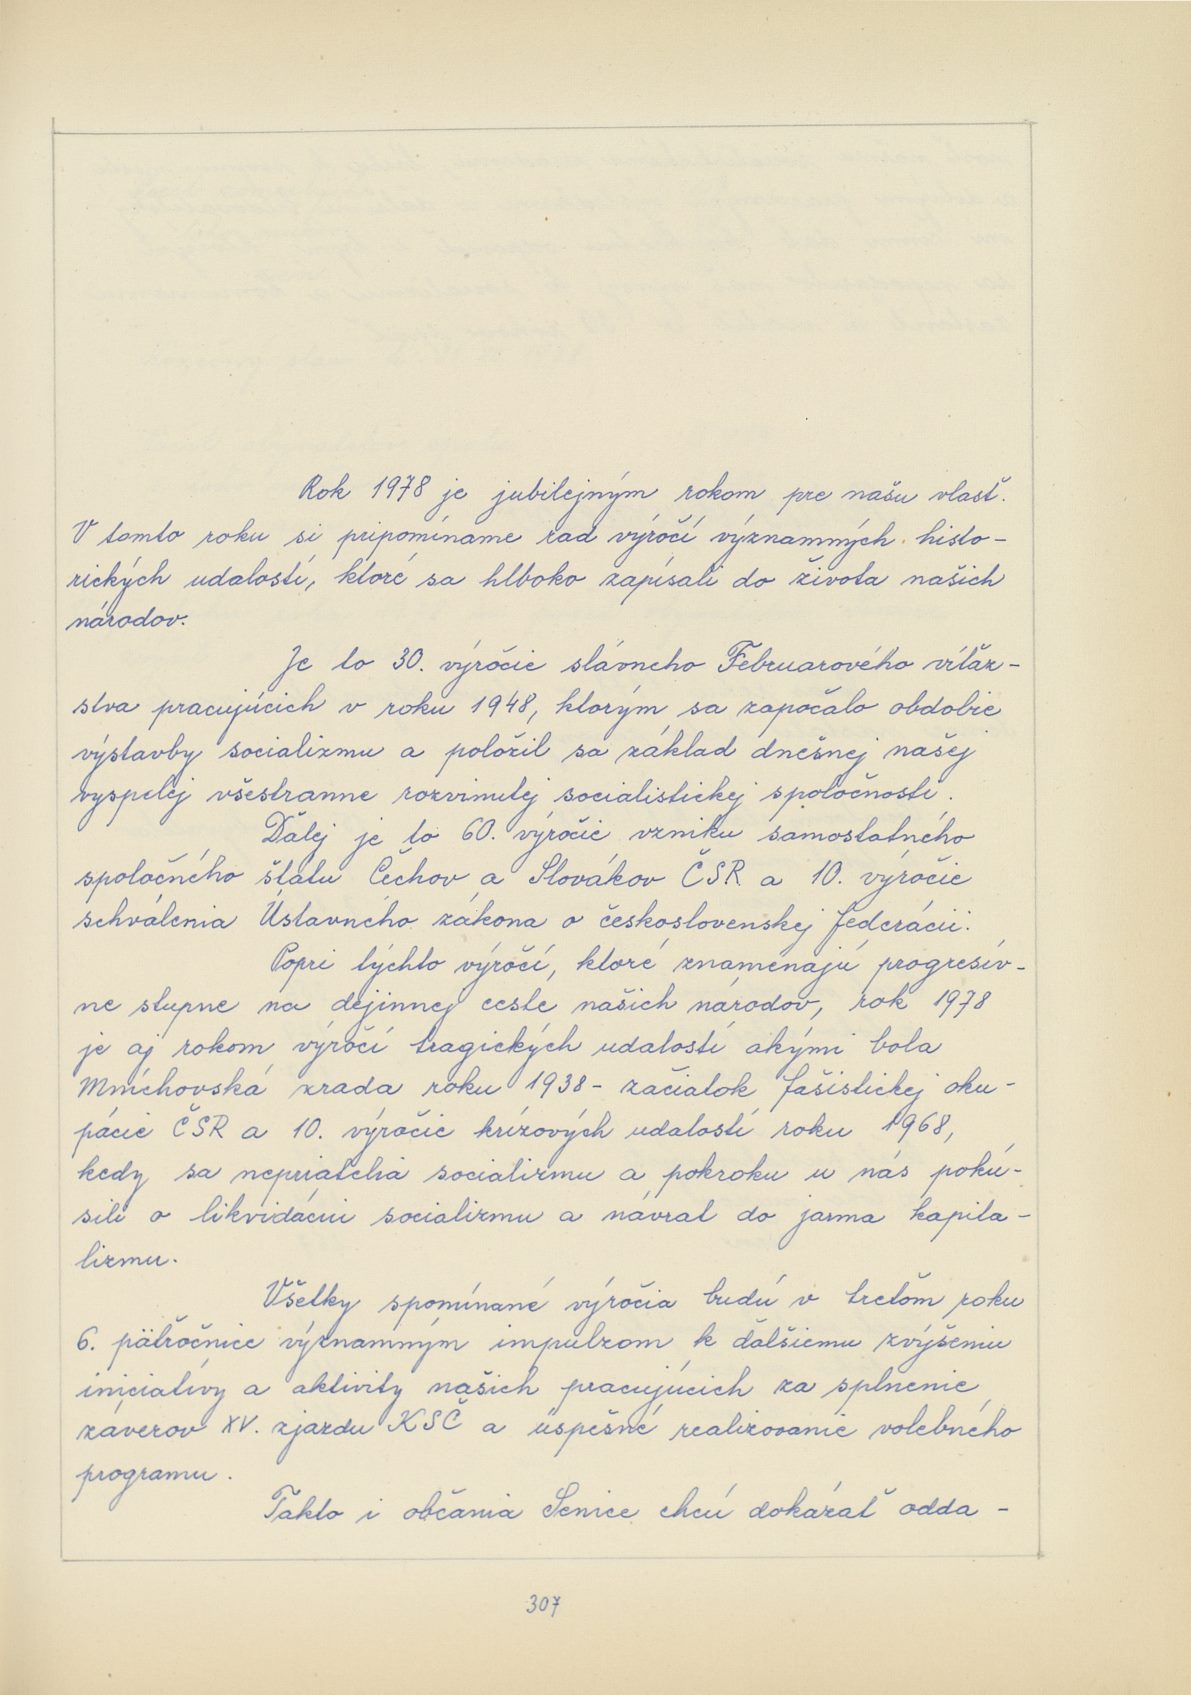 Rok 1978 je jubilejným rokom pre našu vlasť.
V tomto roku si pripomíname rad výročí významných histo-
rických udalostí, ktoré sa hlboko zapísali do života našich
národov.
Je to 30. výročie slávneho Februarového víťaz-
stva pracujúcich v roku 1948, ktorým sa započalo obdobie
výstavby socializmu a položil sa základ dnešnej našej
vyspelej všestranne rozvinutej socialistickej spoločnosti.
Ďalej je to 60. výročie vzniku samostatného
spoločného štátu Čechov a Slovákov ČSR a 10. výročie
schválenia Ústavného zákona o československej federácii.
Popri týchto výročí, ktoré znamenajú progresív-
ne stupne na dejinnej ceste našich národov, rok 1978
je aj rokom výročí tragických udalostí akými bola
Mníchovská zrada roku 1938 - začiatok fašistickej oku-
pácie ČSR a 10. výročie krízových udalostí roku 1968,
kedy sa nepriatelia socializmu a pokroku u nás pokú-
sili o likvidáciu socializmu a návrat do jarma kapita-
lizmu.
Všetky spomínané výročia budú v treťom roku
6. päťročnice významným impulzom k ďalšiemu zvýšeniu
iniciatívy a aktivity našich pracujúcich za splnenie
záverov XV. zjazdu KSČ a úspešné realizovanie volebného
programu.
Takto i občania Senice chcú dokázať odda-
307